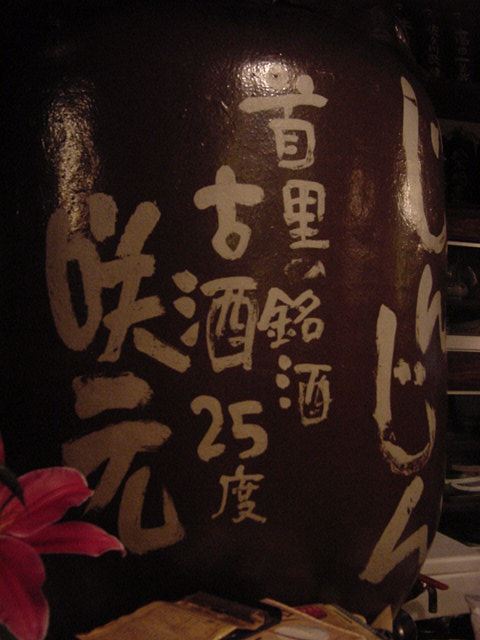 じんじん
首里の銘酒
古酒25度
咲元